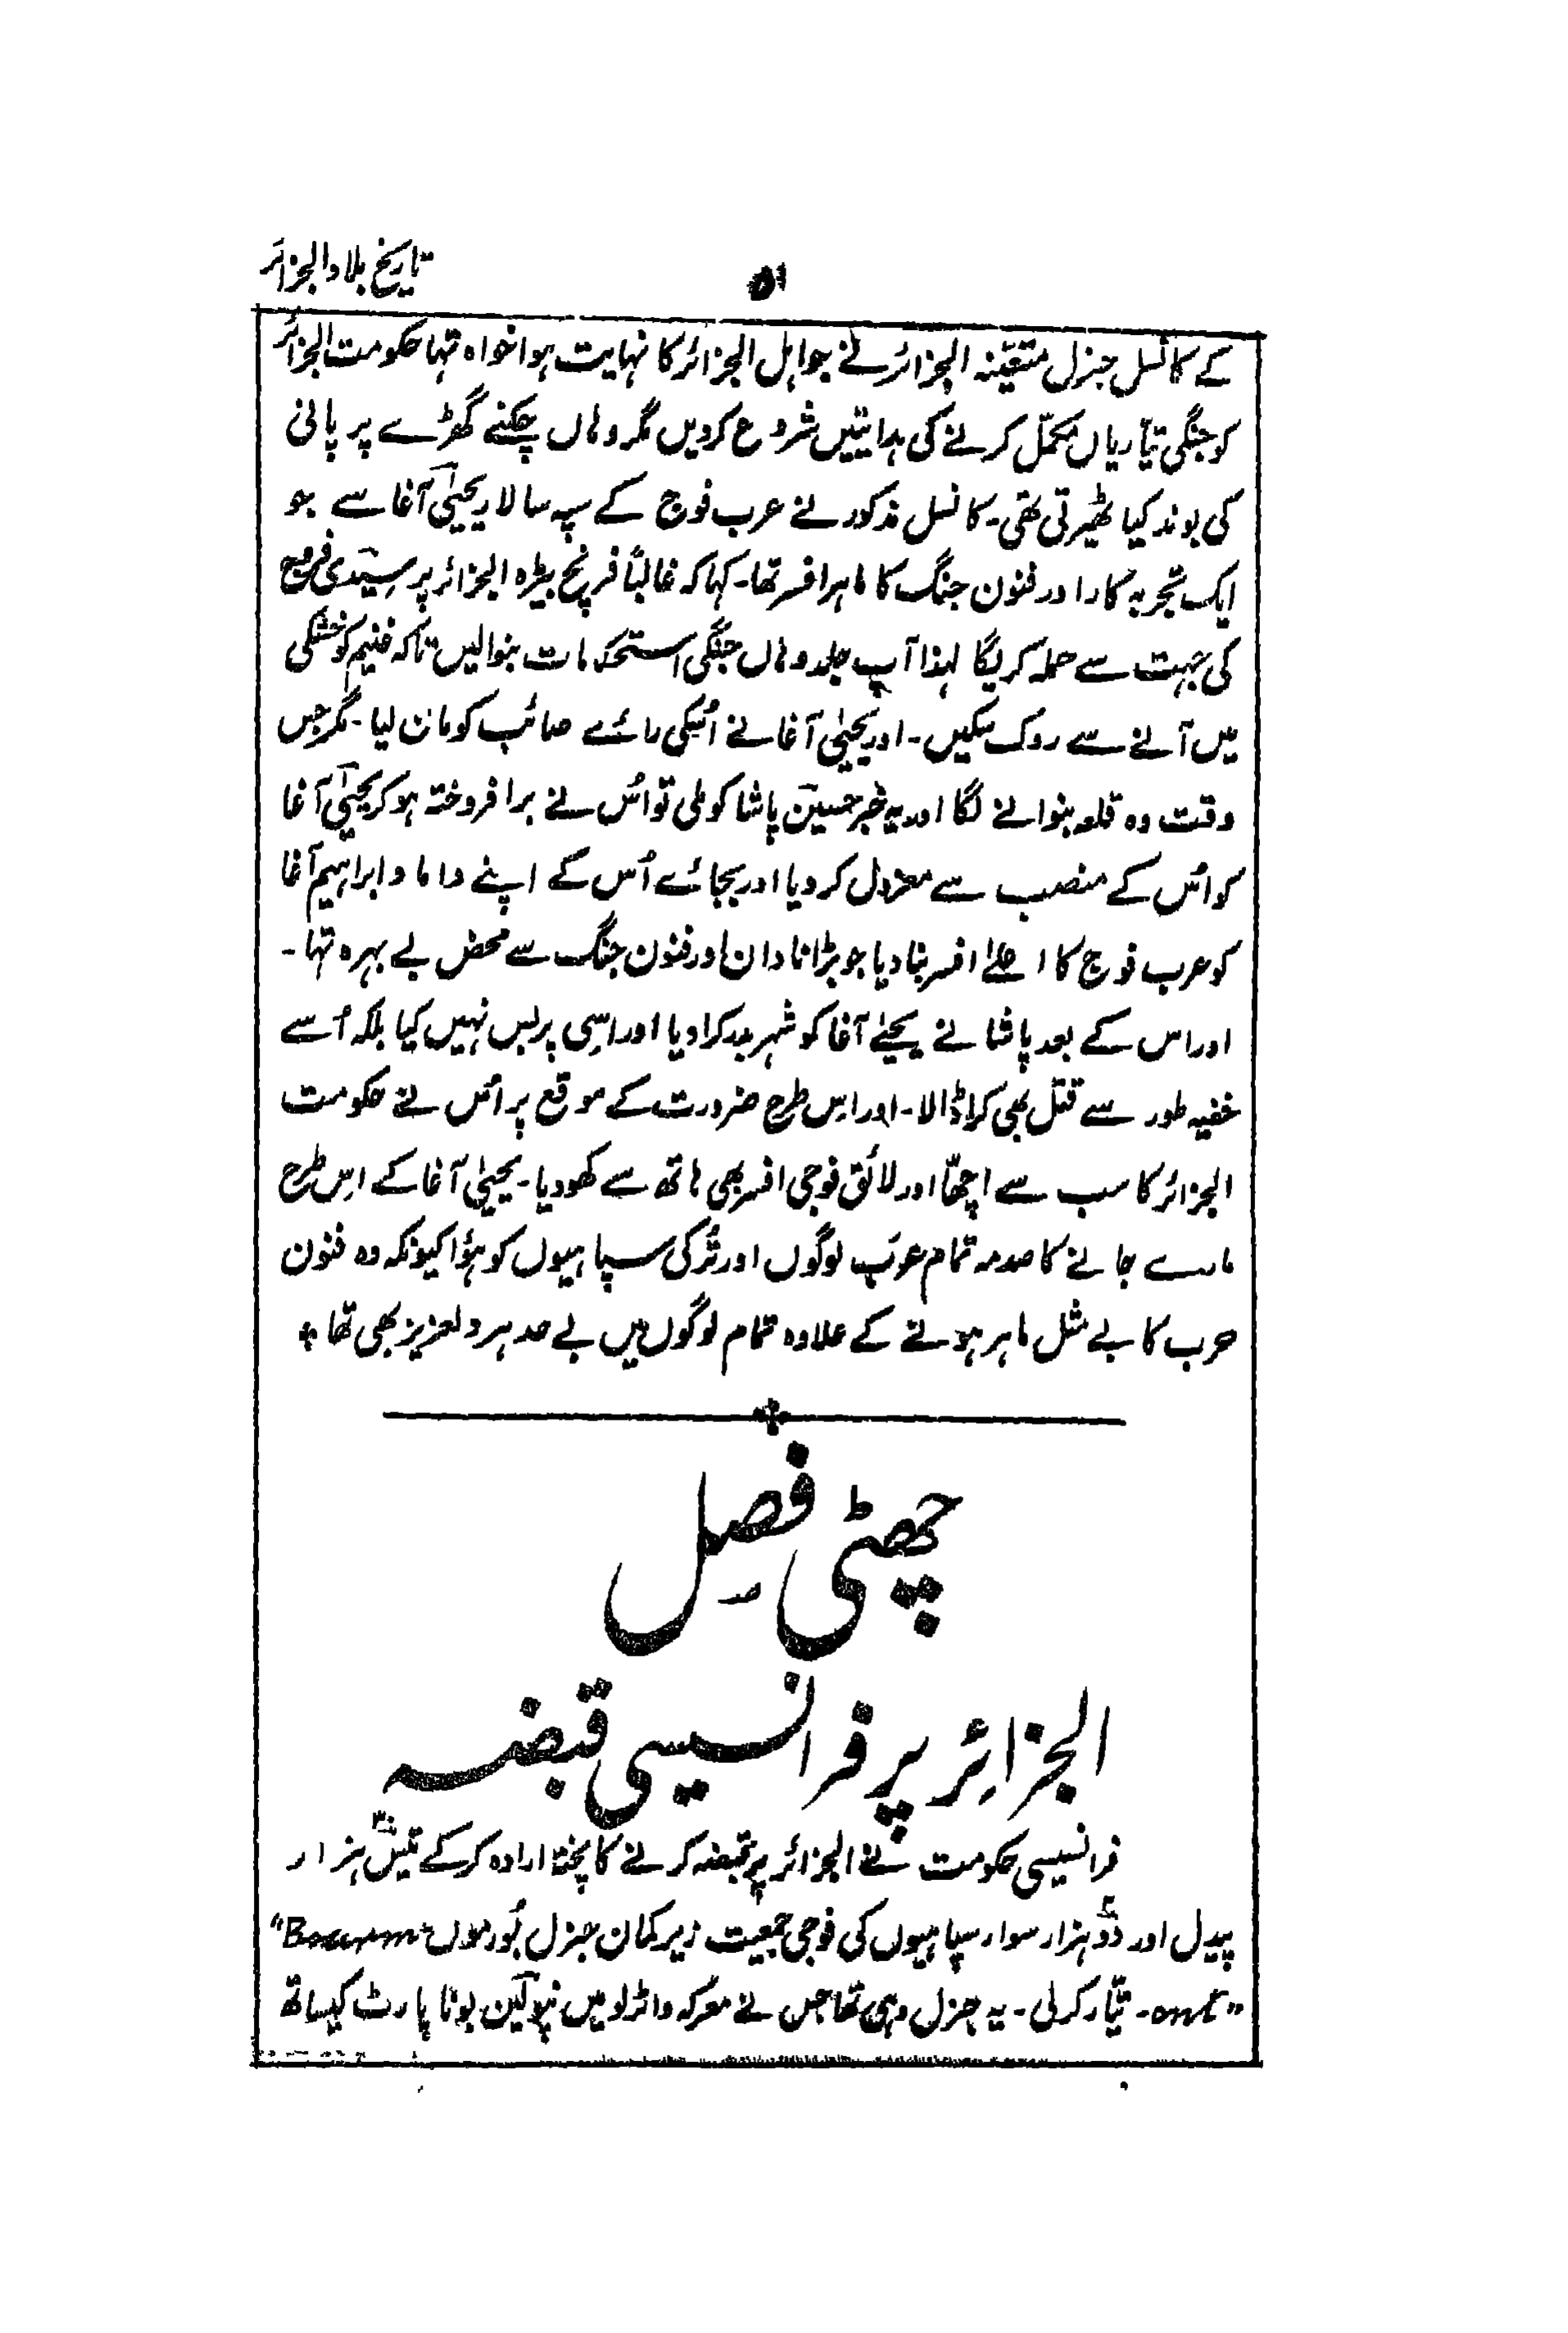 تاریخ بلاد الجزائر
۵۱
کے کانسل جنرل متعیّنہ الجزائر نے جو اہل الجزائر کا نہایت ہوا خواہ تہا حکومت الجزائر
کو جنگی تیّاریاں مکمّل کرنے کی ہدایتیں شروع کردیں مگر وہاں چکنے گھڑے پر پانی
کی بوند کیا ٹھیرتی تھی۔ کانسل مذکور نے عرب فوج کے سپہ سالار یحییٰ آغا سے جو
ایک تجربہ کار اور فنون جنگ کا ماہر افسر تھا۔ کہا کہ غالباً فرنچ بیڑہ الجزائر پر سیّدی فروج
کی جہت سے حملہ کریگا لہذا آپ جلد وہاں جنگی استحکامات بنوالیں تاکہ غنیم کو خشکی
میں آنے سے روک سکیں۔ اور یحییٰ آغا نے اُسکی رائے صائب کو مان لیا۔ مگر جس
وقت وہ قلعہ بنوانے لگا اور یہ خبر حسین پاشا کو ملی تو اُس نے برافروختہ ہو کر یحییٰ آغا
کو اُس کے منصب سے معزول کردیا اور بجائے اُس کے اپنے داماد ابراہیم آغا
کو عرب فوج کا اعلےٰ افسر بنادیا جو بڑا نادان اور فنون جنگ سے محض بے بہرہ تہا۔
اور اس کے بعد پاشا نے یحییٰ آغا کو شہر بدر کرادیا اور اسِی پر بس نہیں کیا بلکہ اُسے
خفیہ طور سے قتل بھی کرا ڈالا۔ اور اِس طرح ضرورت کے موقع پر اُس نے حکومت
الجزائر کا سب سے اچھّا اور لائق فوجی افسر بھی ہاتھ سے کھو دیا۔ یحییٰ آغا کے اِس طرح
مارے جانے کا صدمہ تمام عرب لوگوں اور تُرکی سپاہیوں کو ہؤا کیونکہ وہ فنون
حرب کا بے مثل ماہر ہونے کے علاوہ تمام لوگوں میں بے حد ہردلعزیز بھی تھا *
چھٹی فصِل
الجزائِر پر فرانسیسی قبضہ
فرانسیسی حکومت نے الجزائر پر قبضہ کرنے کا پختہ ارادہ کرکے تیس ہزار
پیدل اور دو ہزار سوار سپاہیوں کی فوجی جمعیت زیر کمان جنرل بُورموں "Bourm
ont" ۔ تیّار کرلی۔ یہ جنرل وہی تھا جس نے معرکہ واٹرلو میں نپولین بونا پارٹ کیساتھ